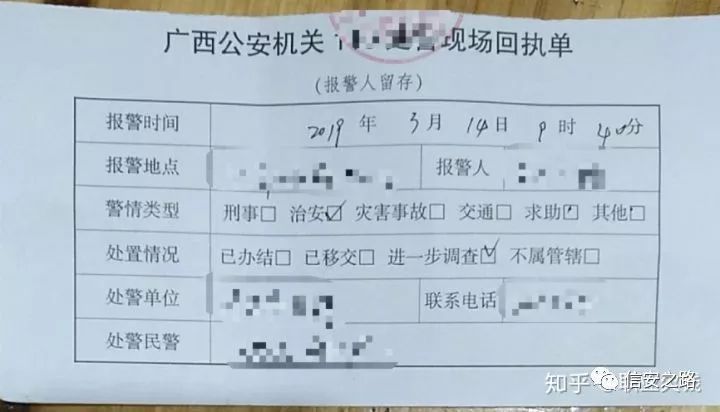 广西公安机关 1 处警现场回执单
(报警人留存)
报警时间 2019 年 3月 14日 9时 40分
报警地点 报警人
警情类型 刑事□ 治安☑ 灾害事故□ 交通□ 求助□ 其他□
处置情况 已办结□ 已移交□ 进一步调查☑ 不属管辖□
处警单位 联系电话
处警民警
知乎 信安之路